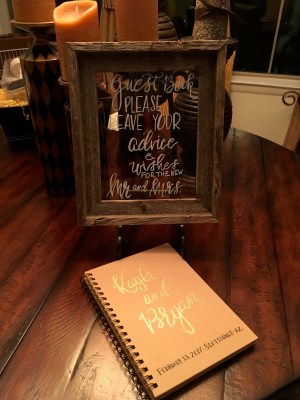 Guest Book
PLEASE
LEAVE YOUR
advice
&
wishes
FOR THE NEW
Mr. and Mrs.
Kayla
and
Bryan
FEBRUARY 2017-SCOTTSDALE, AZ.